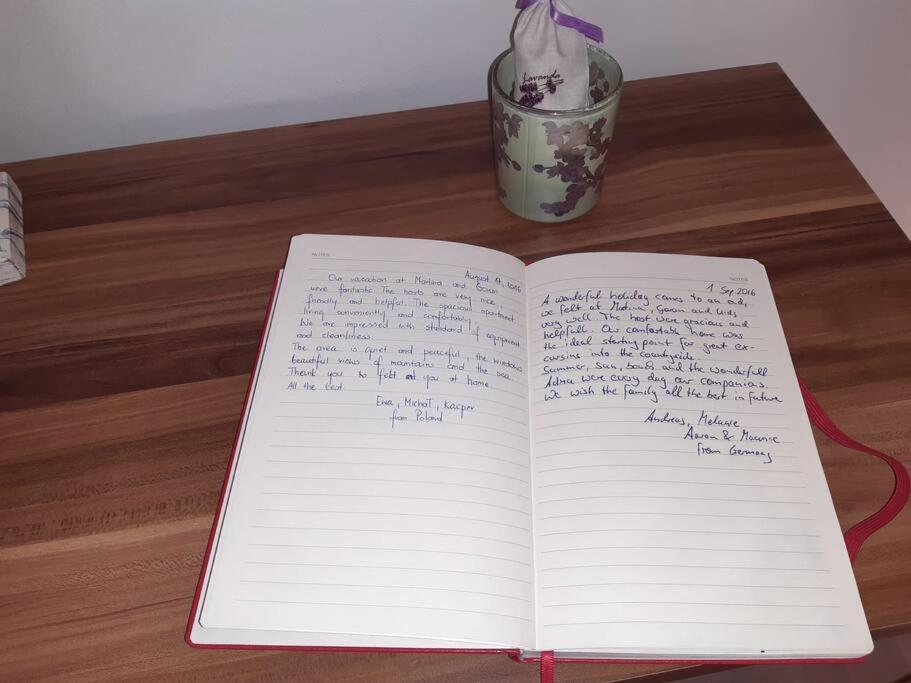 Lavanda
NOTES
August 17, 2016
Our vacation at Martina and Goran
were fantastic. The hosts are very nice,
friendly and helpful. The spacious apartment
living conveniently and comfortably.
We are impressed with standard of equipment
and cleanliness.
The area is quiet and peaceful, the windows
beautiful views of mountains and the sea.
Thank you to felt at you at home.
All the best
Ewa, Michał, Kacper
from Poland
NOTES
1 Sep. 2016
A wonderful holiday comes to an end,
we felt at Matina, Goran and kids
very well. The host were gracious and
helpfull. Our comfortable home was
the ideal starting point for great ex-
cursins into the countryside.
Summer, sun, boats and the wonderfull
Adria were every day our companions.
We wish the family all the best in future
Andreas, Melanie
Aaron & Maurice
from Germany